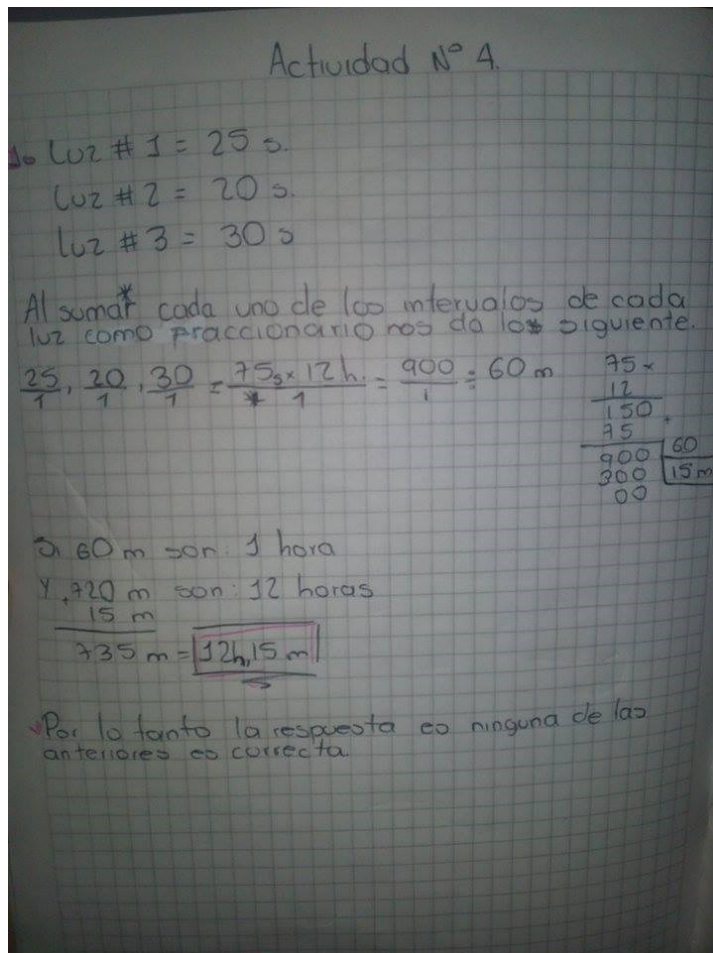 Actividad N° 4.
1. Luz # 1 = 25 s.
Luz # 2 = 20 s.
luz # 3 = 30 s
Al sumar cada uno de los intervalos de cada
luz como fraccionario nos da lo siguiente.
25/1, 20/1, 30/1 = 75s x 12 h. / 1 = 900/1 = 60 m
75 x
12
150 +
75
900 60
300 15 m
00
Si 60 m son: 1 hora
Y, 720 m son: 12 horas
15 m
735 m = 12h, 15 m
Por lo tanto la respuesta es ninguna de las
anteriores es correcta.